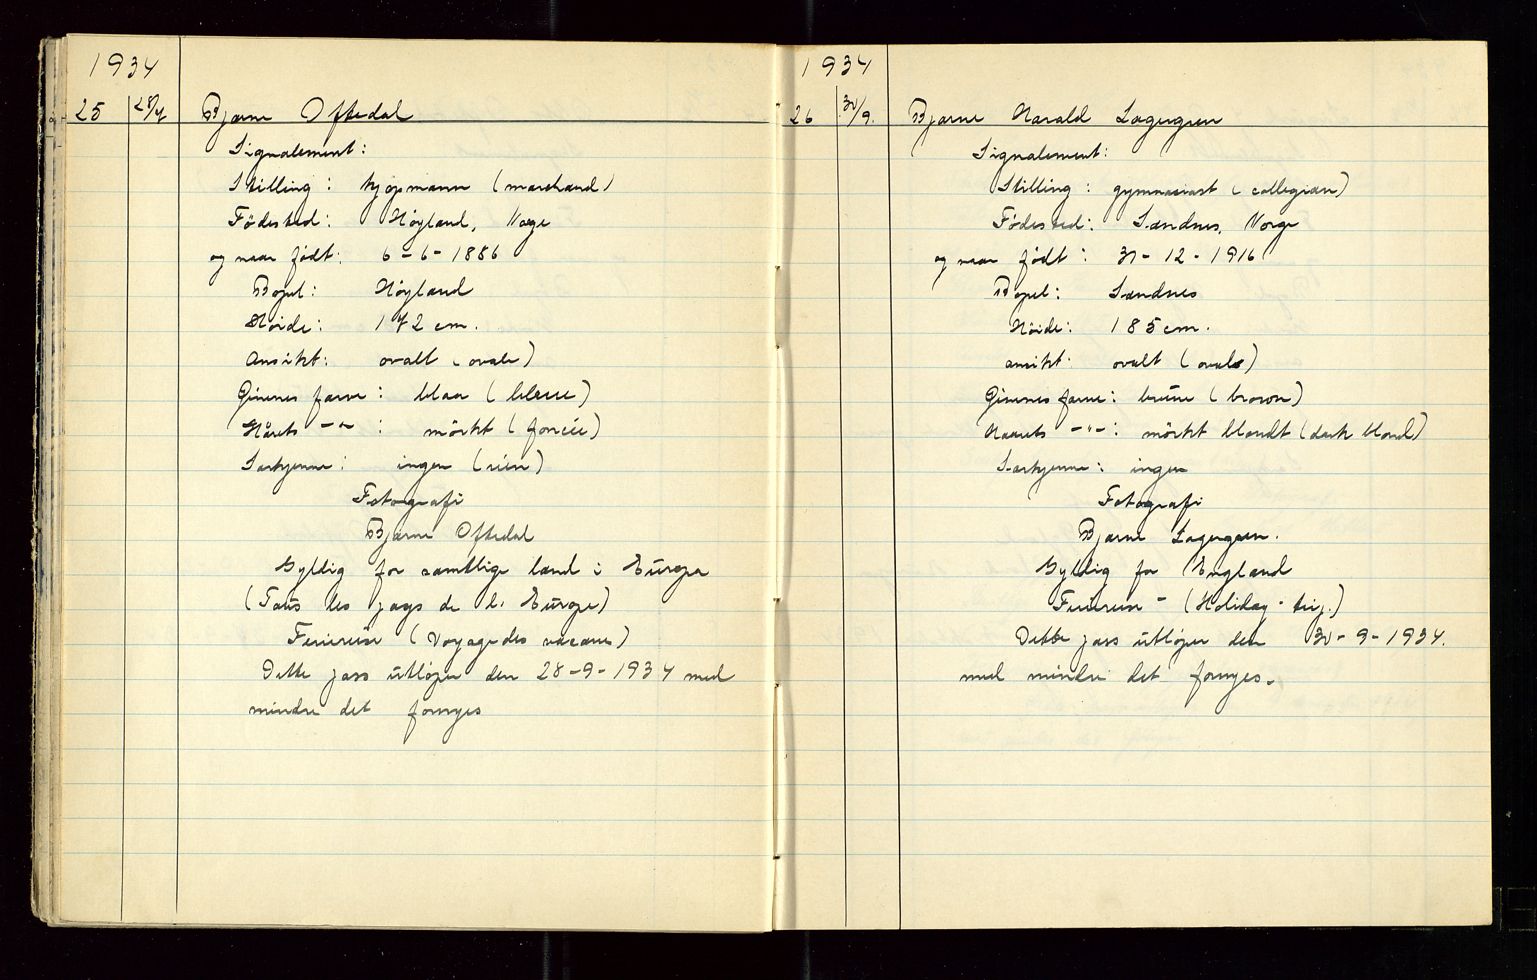 1934
25 28/7 Bjarne Oftedal
Signalement:
Stilling: kjøpmann (marchand)
Födested: Høyland, Norge
og naar født: 6-6-1886
Bopel: Høyland
Høide: 172 cm.
Ansikt: ovalt (ovale)
Øinenes farve: blaa (bleue)
Hårets -"-: mörkt (foncée)
Særkjenne: ingen (rien)
Fotografi
Bjarne Oftedal
Gyldig for samtlige land i Europa
(Tous les pays de l. Europe)
Feriereise (Voyage des vacans)
Dette pass utløper den 28-9-1934 med
mindre det fornyes
1934
26 30/9. Bjarne Harald Lagergren
Signalement:
Stilling: gymnasiast (collegian)
Födested: Sandnes, Norge
og naar født: 31-12-1916
Bopel: Sandnes
Høide: 185 cm.
ansikt: ovalt (oval)
Øinenes farve: brune (brown)
Haarets -"-: mörkt blondt (dark blond)
Særkjenne: ingen
Fotografi
Bjarne Lagergren.
Gyldig for England
Feriereise - (Holiday-trip.)
Dette pass utløper den 30-9-1934.
med mindre det fornyes.